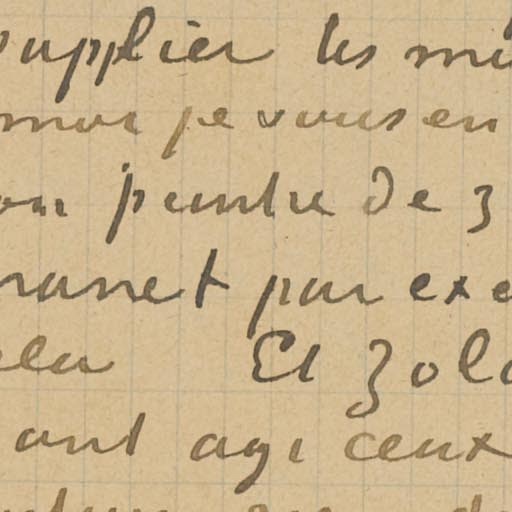 supplier les
moi je vous en
bon peintre de 3
manet par exe
cela Et Zola
ont agi ceux